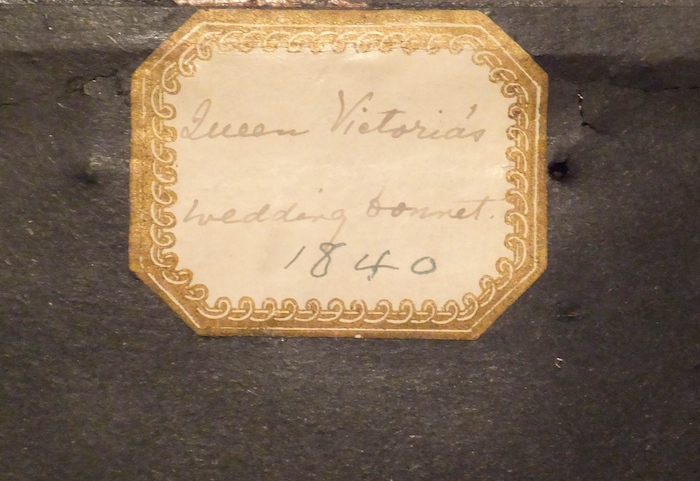 Queen Victoria's
wedding bonnet.
1840